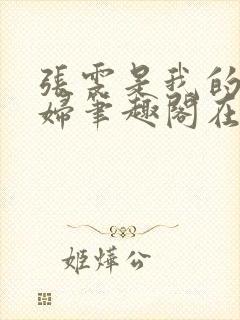 張雲是我的
婦筆趣閣在
姬燁公